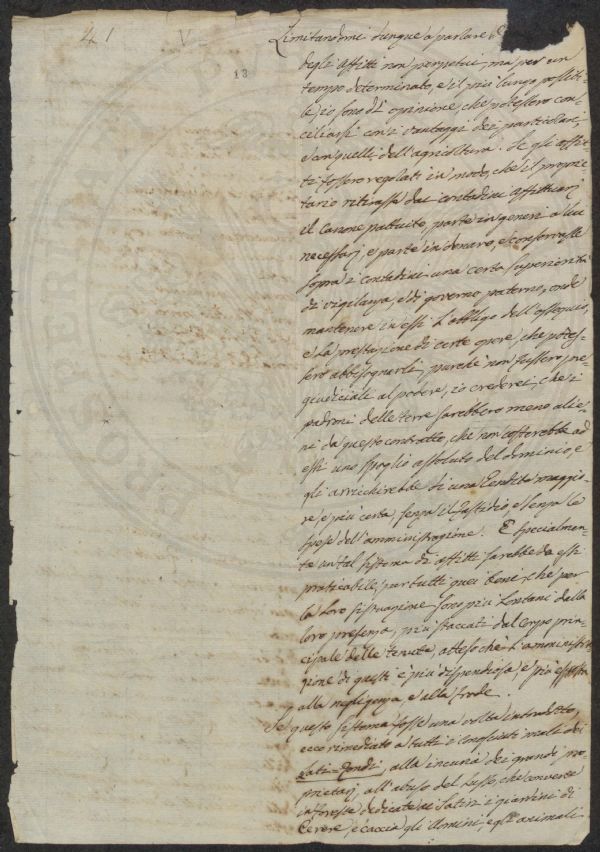 41 V
13
Limitandomi dunque a parlare
degli affitti non perpetui, ma per un
tempo determinato, e il più lungo possibi-
le, io sono d'opinione, che potessero con-
ciliarsi con i vantaggi dei particolari,
e con quelli dell'agricoltura. Se gli affit-
ti fossero regolati in modo, che il proprie-
tario ritirasse dai contadini affittuarj
il canone pattuito, parte in generi a lui
necessarj, e parte in denaro, e conservasse
sopra i contadini una certa superiorità
di vigilanza, e di governo paterno, onde
mantenere in essi l'obbligo dell'ossequio,
e la prestazione di certe opere, che potes-
sero abbisognarli, purché non fussero pre-
giudiciali al podere, io crederei, che i
padroni delle terre sarebbero meno alie-
ni da questo contratto, che non costerebbe ad
essi uno spoglio assoluto del dominio, e
gli arricchirebbe di una rendita maggio-
re, e più certa, senza il fastidio, e senza le
spese dell'amministrazione. E specialmen-
te un tal sistema di affitti sarebbe da essi
praticabile, per tutti quei beni, che per
la loro situazione sono più lontani dalla
loro presenza, più staccati dal corpo prin-
cipale delle tenute, atteso che l'amministra-
zione di questi è più dispendiosa, e più esposta
alla negligenza, e alla frode.
Se questo sistema fosse una volta introdotto,
ecco rimediato a tutti i conosciuti mali dei
Lati-fondi, alla incuria dei grandi pro-
prietarj, all'abuso del lusso, che converte
in foreste dedicate ai Satiri i giardini di
Cerere, e caccia gli uomini, e gli animali